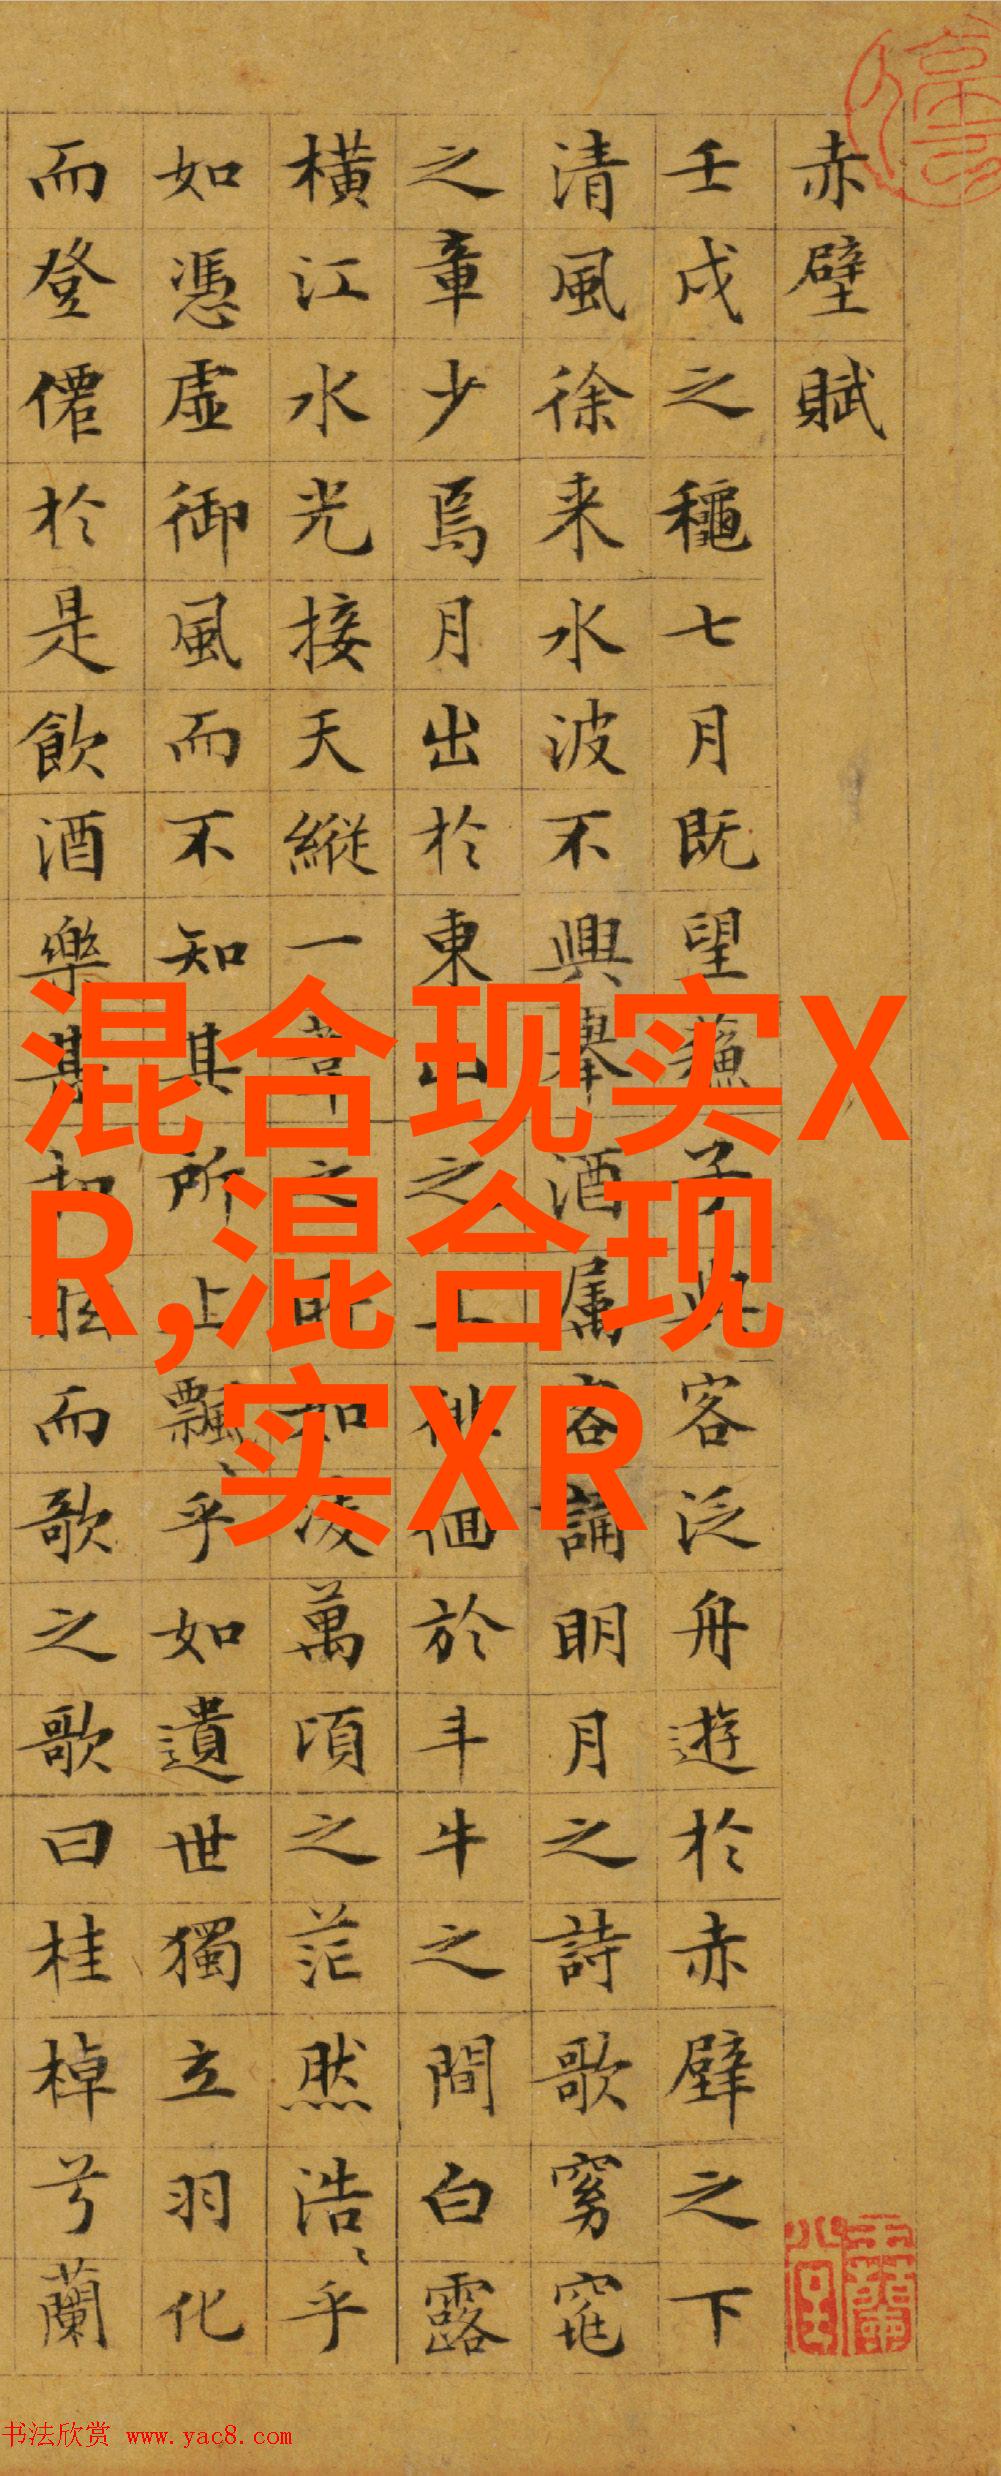 赤壁賦
壬戌之龝七月既望蘓子與客泛舟遊於赤壁之下
清風徐来水波不興舉酒属客誦明月之詩歌窈窕
之章少焉月出於東山之上徘徊於斗牛之間白露
橫江水光接天縱一葦之所如凌萬頃之茫然浩〻乎
如憑虛御風而不知其所止飄〻乎如遺世獨立羽化
而登僊於是飲酒樂甚扣舷而歌之歌曰桂棹兮蘭
混合现实X
R,混合现
实XR
书法欣赏 www.yac8.com